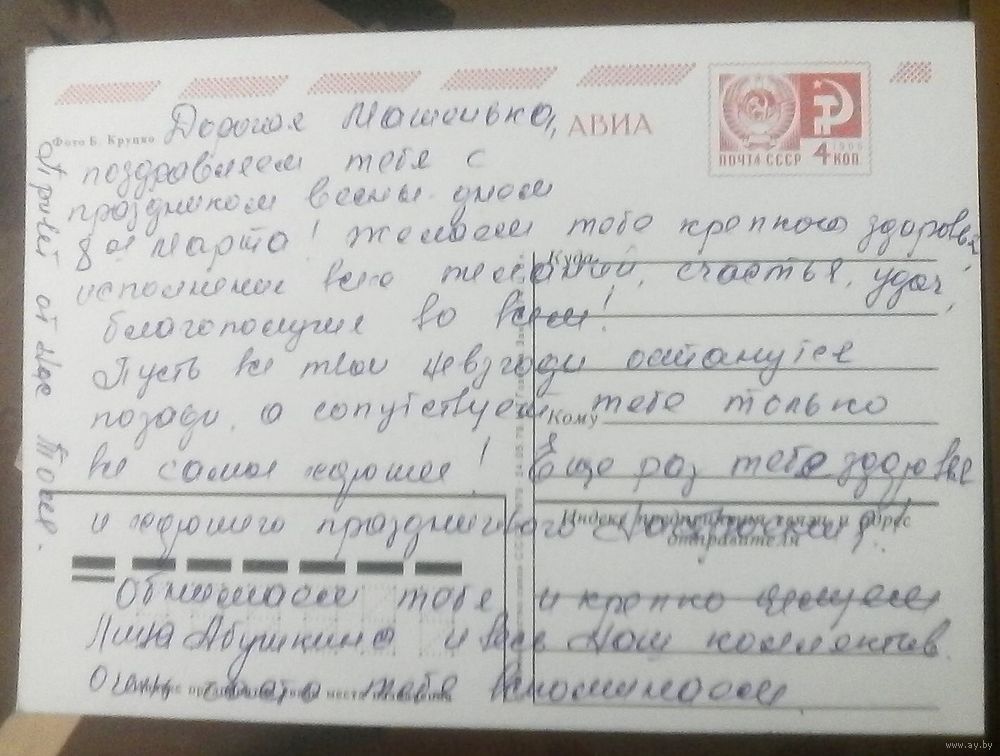 Фото Б. Крупко
АВИА
ПОЧТА СССР 4 КОП
1966
Дорогая Машенька,
поздравляем тебя с
праздником весны днем
8 ое марта! желаем тебе крепкого здоровья,
исполнение всех желаний, счастья, удач,
благополучия во всем!
Пусть все твои невзгоды останутся
позади, а сопутствует тебе только
все самое хорошее! Еще раз тебе здоровье
и хорошего праздничного настроения!
Обнимаем тебя и крепко целуем
Лина Абушкина и весь наш коллектив.
Очень часто тебя вспоминаем
Привет от нас Толе.
Куда
Кому
Индекс предприятия связи и адрес
отправителя
www.ay.by